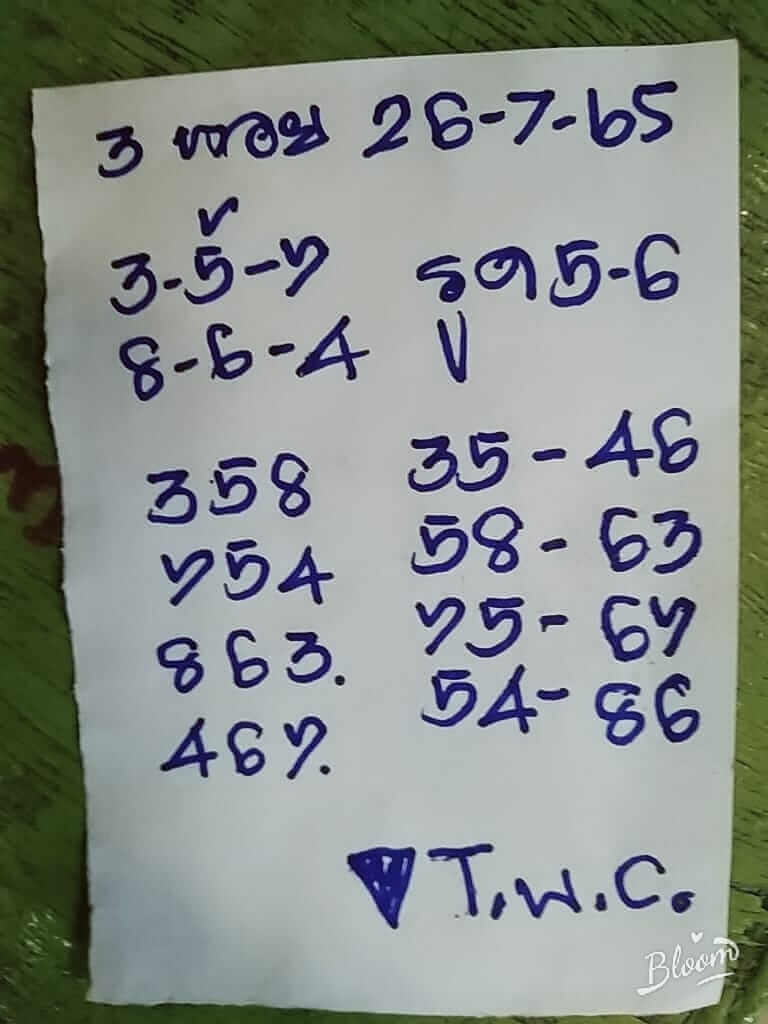 3 ฮานอย 26-7-65
3-5-7
รูด 5-6
8-6-4
358
35-46
754
58-63
863.
75-67
467.
54-86
T.W.C.
Bloom